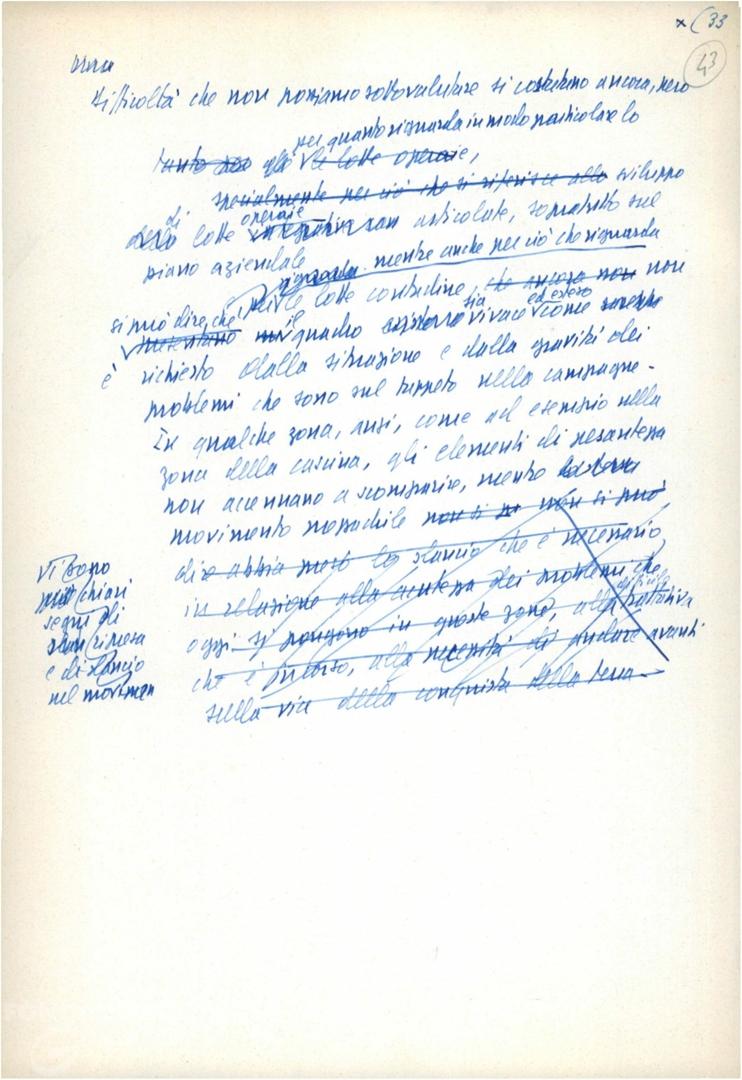 x (33
43
Difficoltà che non possiamo sottovalutare si costatano ancora, però
per quanto riguarda in modo particolare lo
tanto per gli le lotte operaie,
specialmente per ciò che si riferisce allo sviluppo
di operaie
lotte articolate, sopratutto sul
piano aziendale
riguarda mentre anche per ciò che riguarda
le lotte contadine, che ancora non non
si può dire, che il quadro sia vivace ed esteso come sarebbe
presentano
è richiesto dalla situazione e dalla gravità dei
problemi che sono sul tappeto nella campagne.
In qualche zona, anzi, come ad esempio nella
zona della cascina, gli elementi di pesantezza
non accennano a scomparire, mentre
movimento mezzadrile non si può non si può
dire abbia preso lo slancio che è necessario,
in relazione alla acutezza dei problemi che
oggi si pongono in queste zone, alla difficile trattativa
che è in corso, alla necessità di andare avanti
sulla via della conquista della terra.
Vi sono
chiari
segni di
ripresa
e di slancio
nel movimen